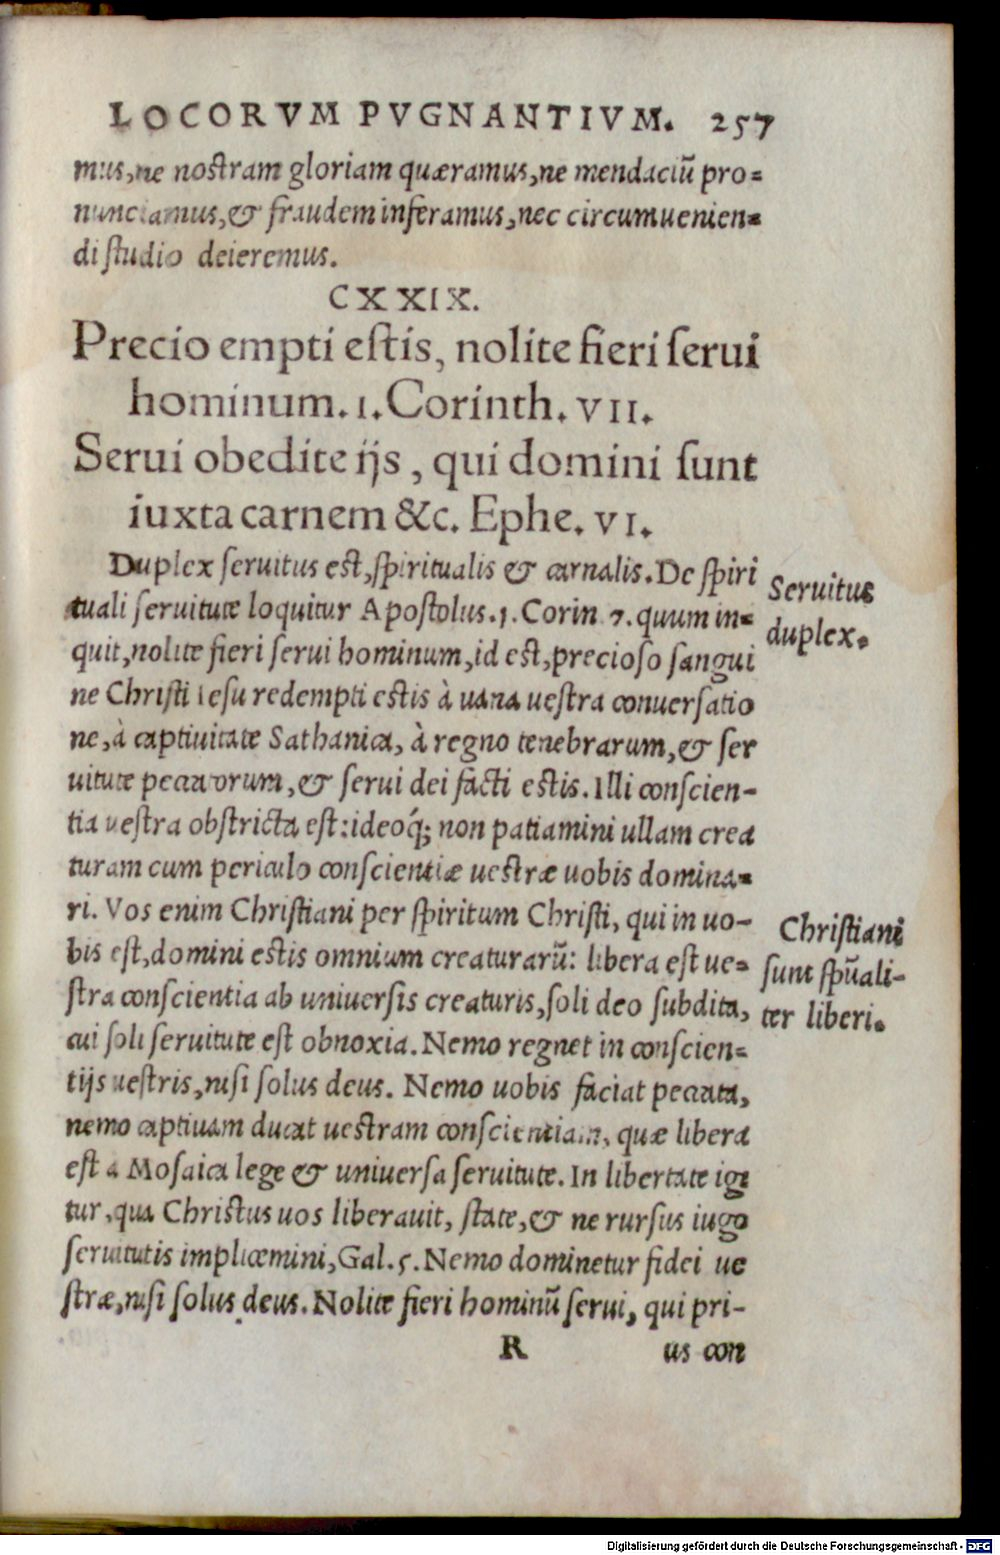 LOCORVM PVGNANTIVM. 257
mus, ne nostram gloriam quæramus, ne mendaciū pro=
nunciamus, & fraudem inferamus, nec circumuenien=
di studio deieremus.
CXXIX.
Precio empti estis, nolite fieri serui
hominum. 1. Corinth. VII.
Serui obedite ijs, qui domini sunt
iuxta carnem &c. Ephe. VI.
Duplex seruitus est, spiritualis & carnalis. De spiri
tuali seruitute loquitur Apostolus. 1. Corin 7. quum in=
quit, nolite fieri serui hominum, id est, precioso sangui
ne Christi Iesu redempti estis à uana uestra conuersatio
ne, à captiuitate Sathanica, à regno tenebrarum, & ser
uitute peccatorum, & serui dei facti estis. Illi conscien-
tia uestra obstricta est: ideoq́; non patiamini ullam crea
turam cum periculo conscientiæ uestræ uobis domina=
ri. Vos enim Christiani per spiritum Christi, qui in uo-
bis est, domini estis omnium creaturarū: libera est ue=
stra conscientia ab uniuersis creaturis, soli deo subdita,
cui soli seruitute est obnoxia. Nemo regnet in conscien=
tijs uestris, nisi solus deus. Nemo uobis faciat peccata,
nemo captiuam ducat uestram conscientiam, quæ libera
est a Mosaica lege & uniuersa seruitute. In libertate igi
tur, qua Christus uos liberauit, state, & ne rursus iugo
seruitutis implicemini, Gal. 5. Nemo dominetur fidei ue
stræ, nisi solus deus. Nolite fieri hominū serui, qui pri-
R us con
Seruitus
duplex.
Christiani
sunt spūali-
ter liberi.
Digitalisierung gefördert durch die Deutsche Forschungsgemeinschaft - DFG